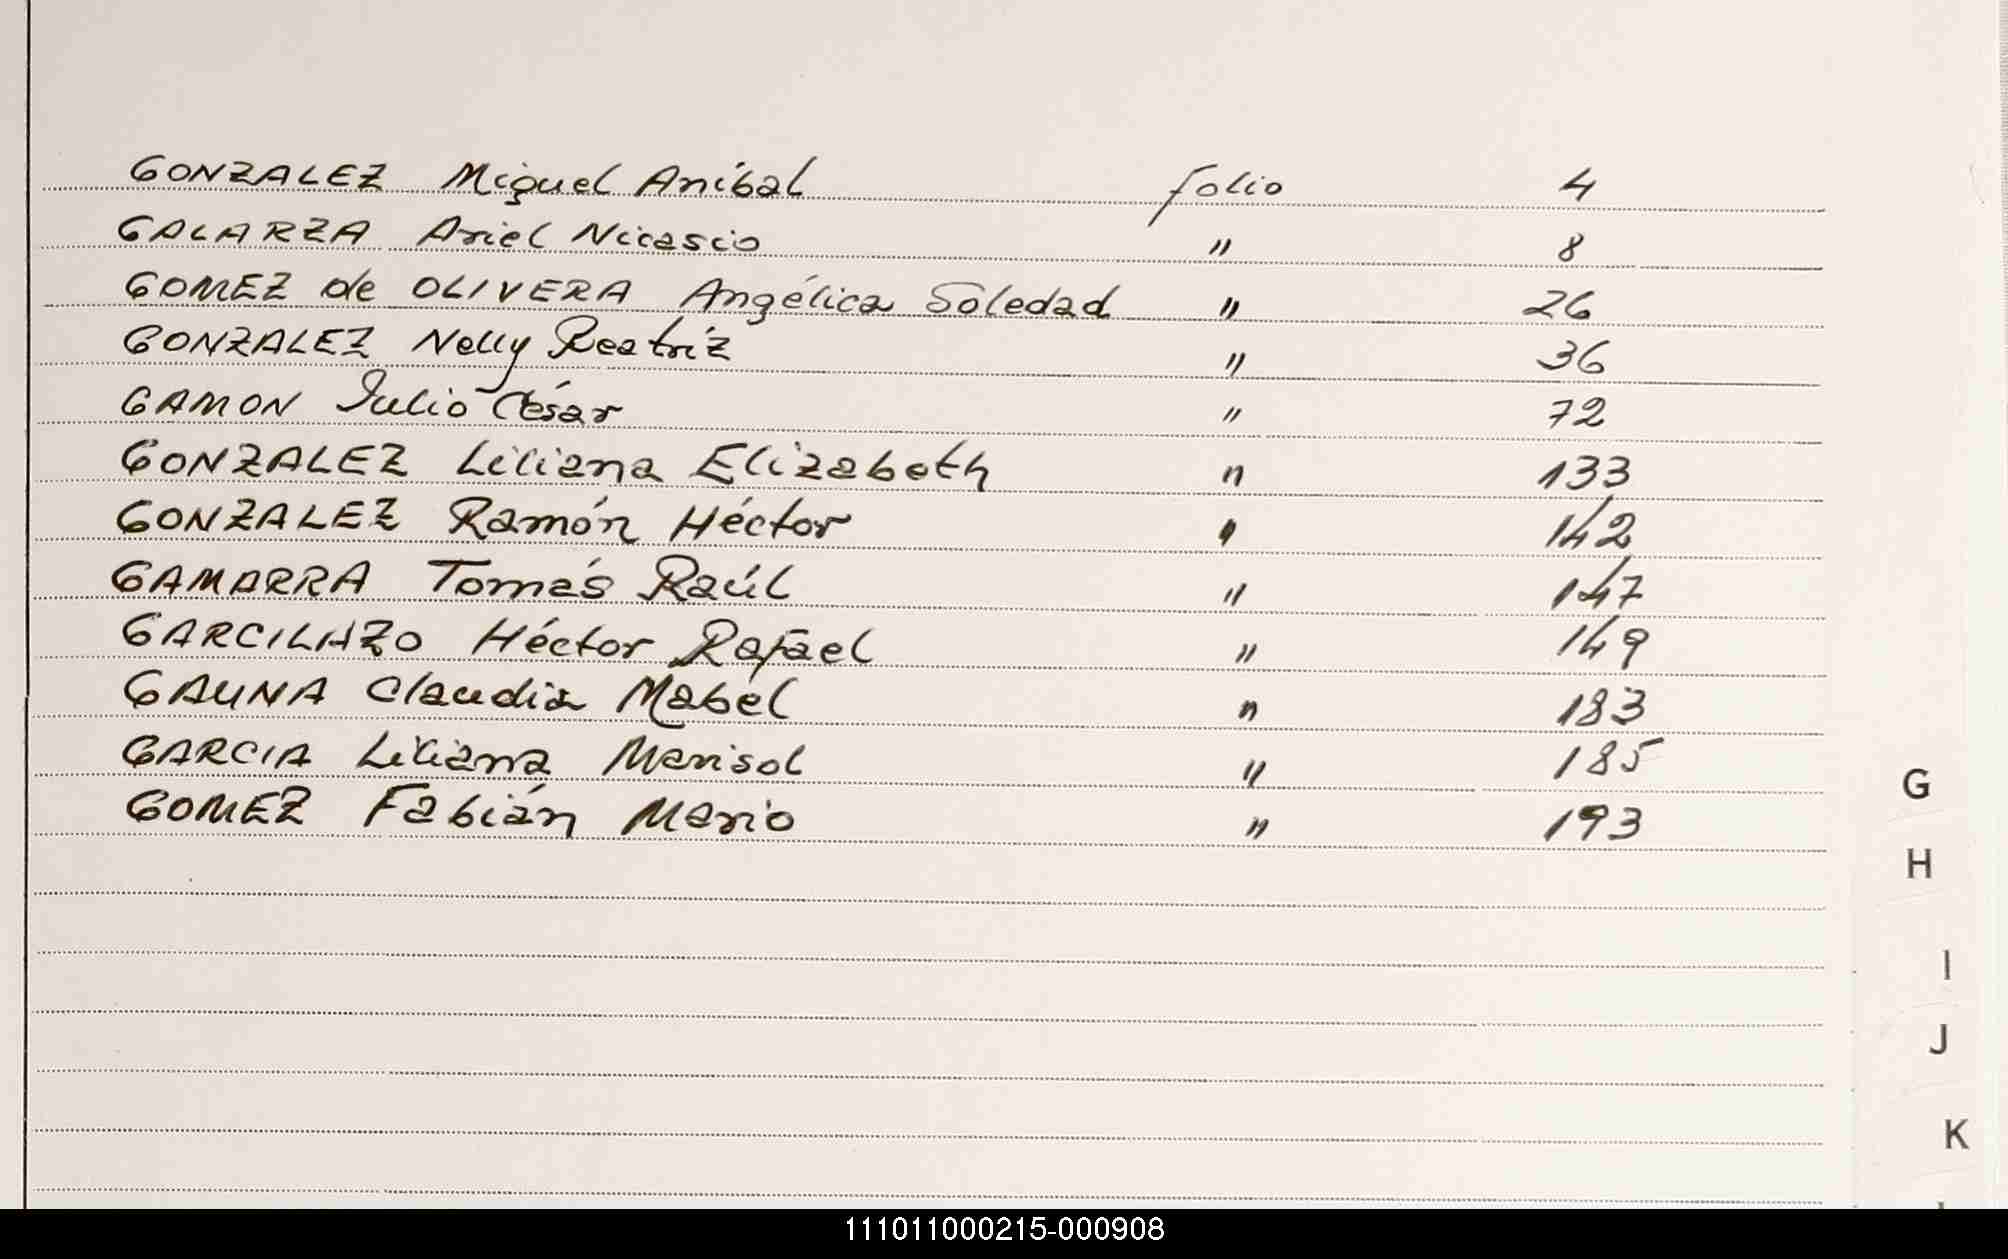 GONZALEZ Miguel Aníbal folio 4
GALARZA Ariel Nicasio " 8
GOMEZ de OLIVERA Angélica Soledad " 26
GONZALEZ Nelly Beatriz " 36
GAMON Julio César " 72
GONZALEZ Liliana Elizabeth " 133
GONZALEZ Ramón Héctor " 142
GAMARRA Tomás Raúl " 147
GARCILAZO Héctor Rafael " 149
GAUNA Claudia Mabel " 183
GARCIA Liliana Marisol " 185
GOMEZ Fabián Mario " 193
G
H
I
J
K
111011000215-000908